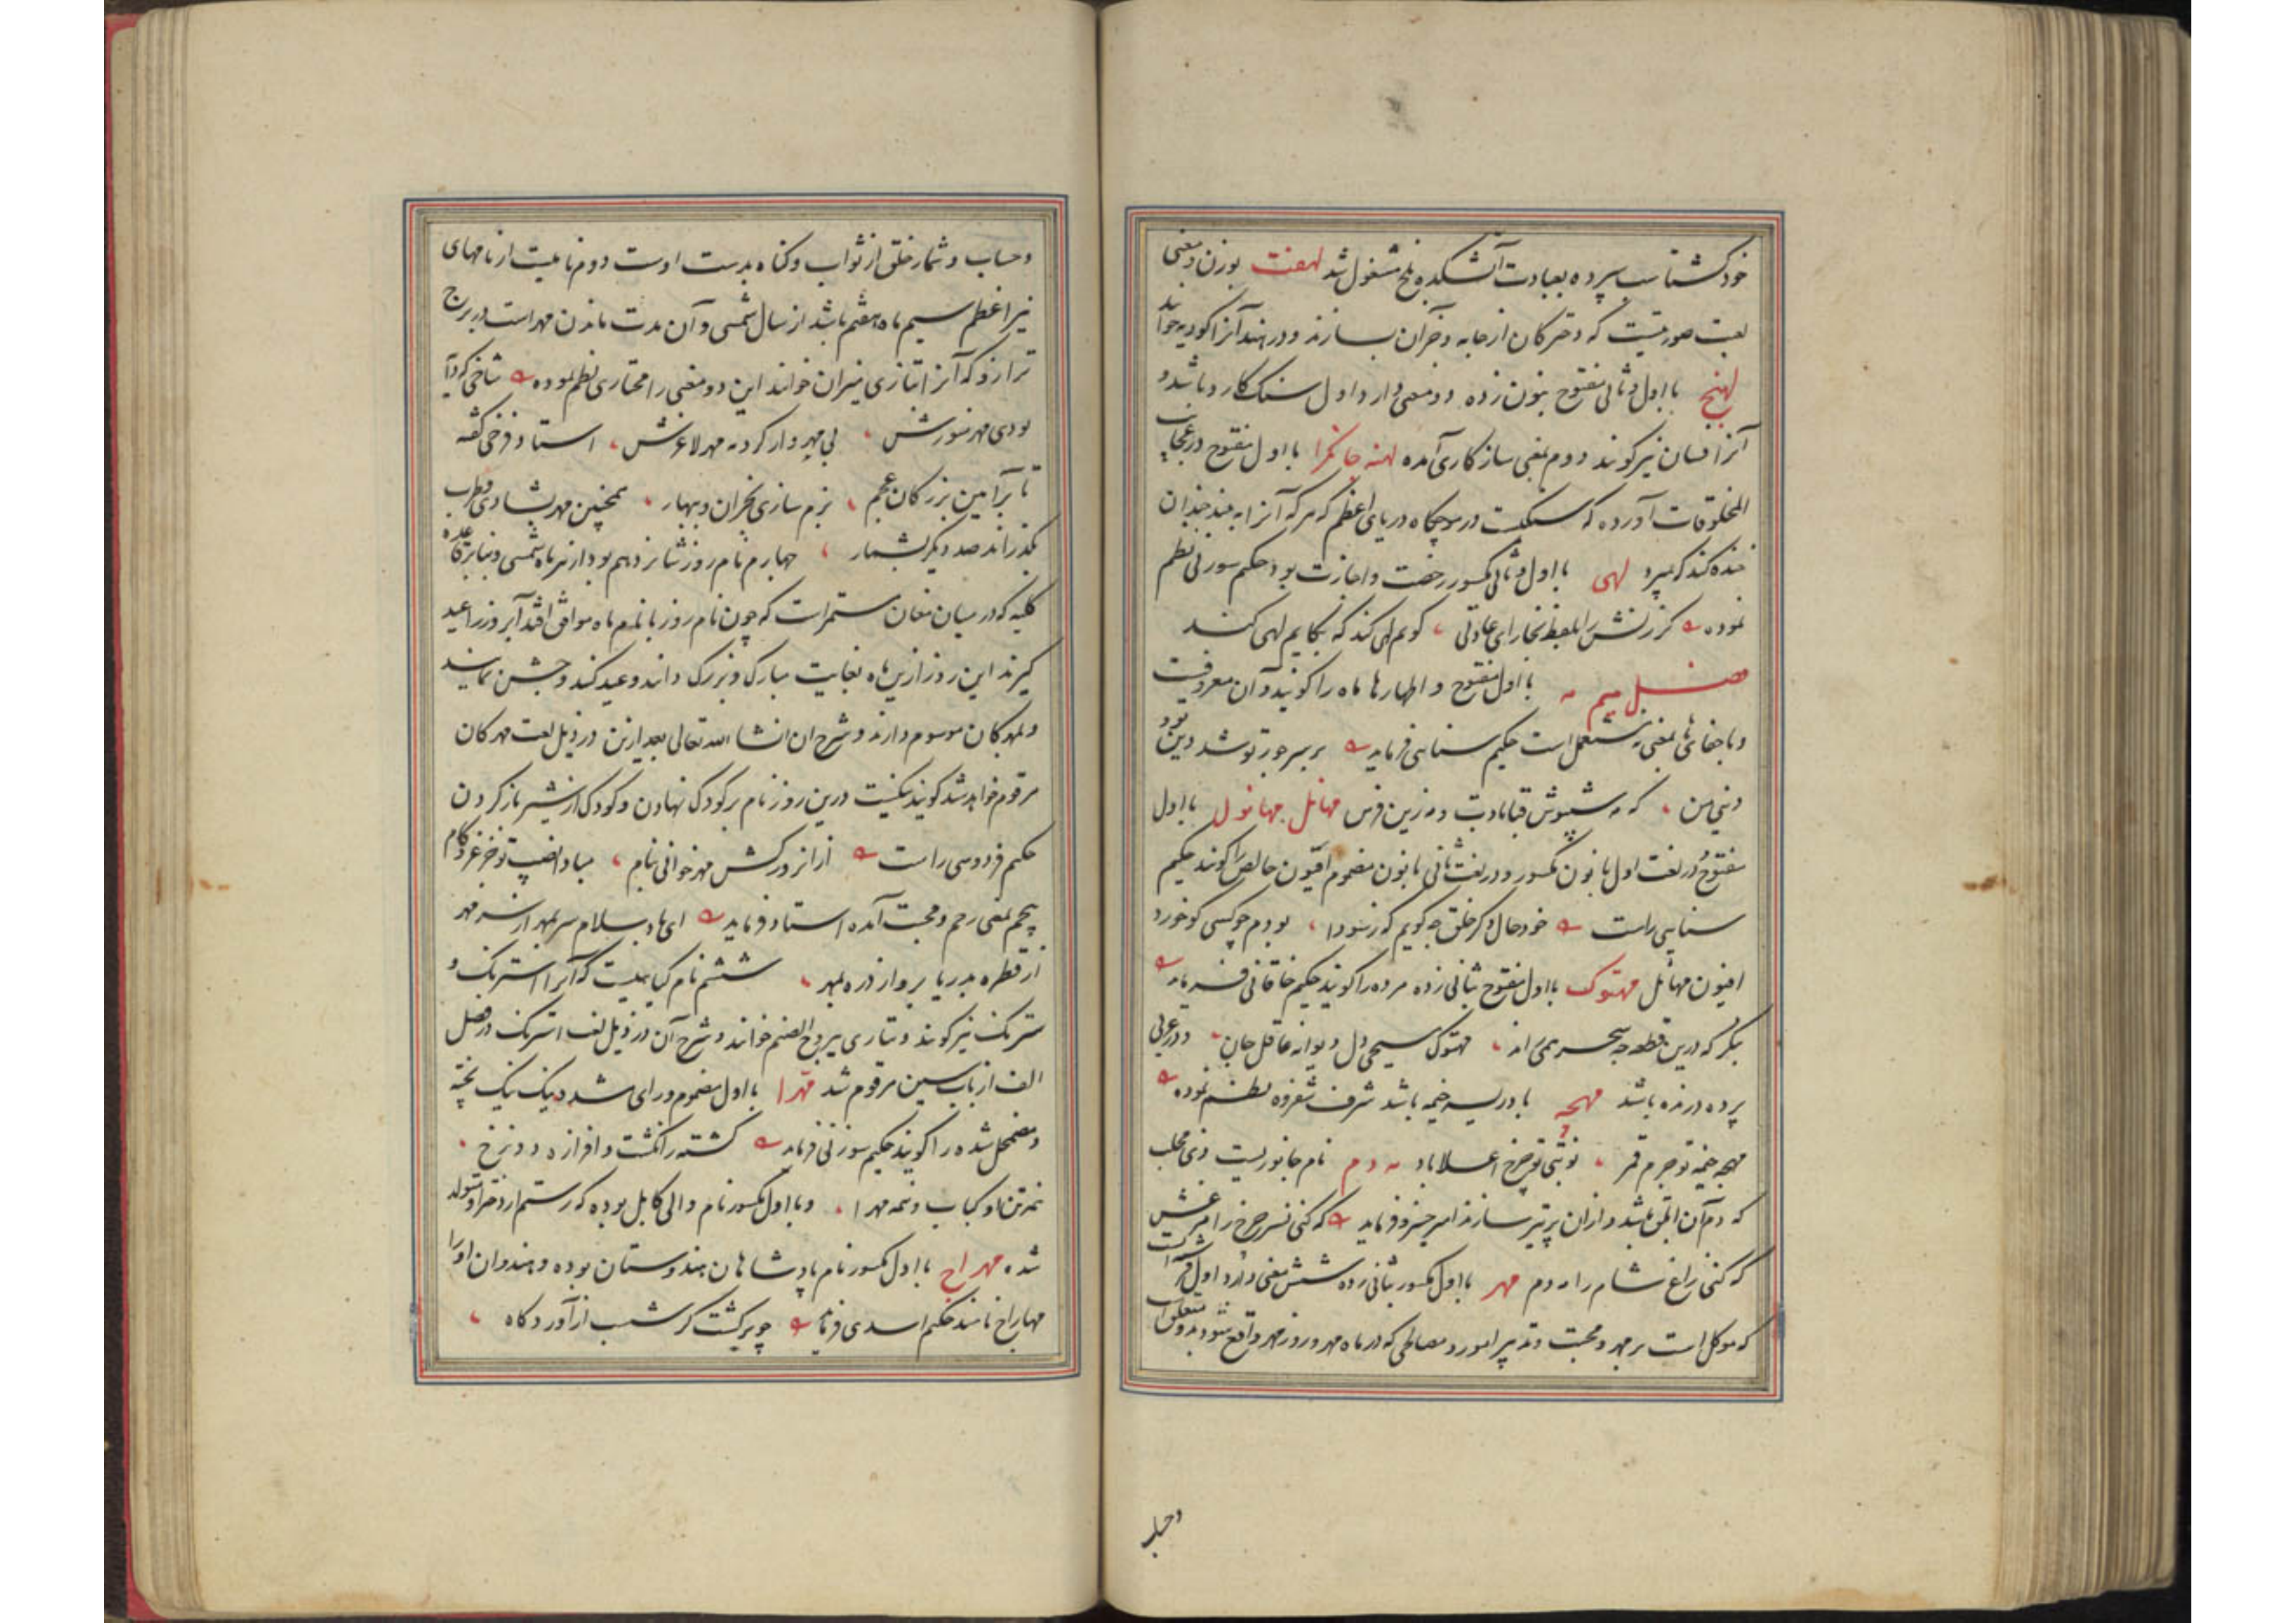 خود کشتاسب سپرده بعبادت آتشکده بلخ مشغول شد لهفت بوزن و معنی
لعبت صورتیست که دخترکان از جامه و جز آن بسازند و در هند آنرا کودیه خوانند
لهنج با اول و ثانی مفتوح بنون زده دو معنی دارد اول سنک کارد باشد و
آنرا فسان نیز کویند دوم بمعنی سازکاری آمده لهنه جانکرا با اول مفتوح در عجایب
المخلوقات آورده که سنکیست در موجکاه دریای اعظم که هر که آنرا به بیند چندان
خنده کند که بمیرد لهی با اول و ثانی مکسور رخصت و اجازت بود حکیم سوزنی نظم
نموده کر زنش را بلفظ بخارای عادلی کویم لهی کند که بکایم لهی کند
فصل میم مه با اول مفتوح و اظهار ها ماه را کویند و آن معروفست
و با خفای ها بمعنی نه مستعمل است حکیم سنایی فرماید بر سر جور تو شد دین تو و
دنیی من که مه شبپوش قبا بادت و مه زین فرس مهانل مهانول با اول
مفتوح در لغت اول با نون مکسور و در لغت ثانی با نون مضموم افیون خالص را کویند حکیم
سنایی راست خود حال دکر خلق چه کویم که ز سودا بودم چو کسی کو خورد
افیون مهانل مهتوک با اول مفتوح بثانی زده مرده را کویند حکیم خاقانی فرماید
بنکر که درین قطعه چه سحر همی راند مهتوک مسیحی دل دیوانه عاقل جان و در عربی
پرده دریده باشد مهچه با دریسه خیمه باشد شرف شفروه نظم نموده
مهچه خیمه تو جرم قمر نوبتی تو چرخ اعلا باد مه دم نام جانوریست ذی مخلب
که دم آن ابلق باشد و از آن پر تیر سازند امیر خسرو فرماید که کنی نسر چرخ را مرغش
که کنی زاغ شام را مه دم مهر با اول مکسور بثانی زده شش معنی دارد اول نام فرشته ایست
که موکل است بر مهر و محبت و تدبیر امور و مصالحی که در ماه مهر و روز مهر واقع شود بدو متعلق است
و حساب
و حساب و شمار خلق از ثواب و کناه بدست اوست دوم نامیست از نامهای
نیر اعظم سیم ماه هفتم باشد از سال شمسی و آن مدت ماندن مهر است در برج
ترازو که آنرا بتازی میزان خوانند این دو معنی را مختاری نظم نموده شاخی که داد
بودی مهر منورش بی مهر وار کرد مه مهر لاغرش استاد فرخی کفته
تا برآیین بزرکان عجم بزم سازی بخزان و ببهار همچنین مهر بشادی و طرب
بکذراند صد دیکر بشمار چهارم نام روز شانزدهم بود از هر ماه شمسی و بنا بر قاعده
کلیه که در میان مغان مستمر است که چون نام روز با نام ماه موافق افتد آنروز را عید
کیرند این روز ازین ماه بغایت مبارک و بزرک دانند و عید کنند و جشن نمایند
و بمهرکان موسوم دارند و شرح آن انشا الله تعالی بعد ازین در ذیل لغت مهرکان
مرقوم خواهد شد کویند نیکست درین روز نام بر کودک نهادن و کودک از شیر باز کردن
حکیم فردوسی راست ازانروز کش مهر خوانی بنام مبادا نصیب تو جز عز و کام
پنجم بمعنی رحم و محبت آمده استاد فرماید ای هادی بسلام سر بمهر از سر مهر
از قطره بدریا بر و از ذره بمهر ششم نام کیاهیست که آنرا استرنک و
سترنک نیز کویند و بتازی یبروح الصنم خوانند و شرح آن در ذیل لغت استرنک در فصل
الف از باب سین مرقوم شد مهرا با اول مضموم و رای مشدد نیک نیک پخته
و مضمحل شده را کویند حکیم سوزنی فرماید کشته ز انکشت و افرازه دوزخ
نمرتن او کباب و نمه مهرا و با اول مکسور نام والی کابل بوده که رستم از دختر او متولد
شده مهراج با اول مکسور نام پادشاهان هندوستان بوده و هندوان او را
مهاراج نامند حکیم اسدی فرماید چو برکشت کرشسب از آوردکاه